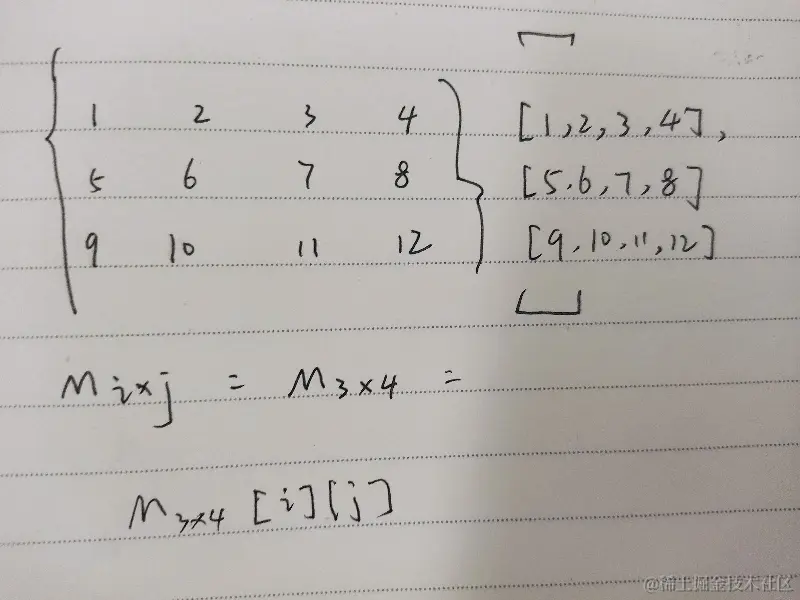 1 2 3 4
5 6 7 8
9 10 11 12
[
[1,2,3,4],
[5.6,7,8]
[9,10,11,12]
]
M i×j = M 3×4 =
M 3×4 [i][j]
@稀土掘金技术社区